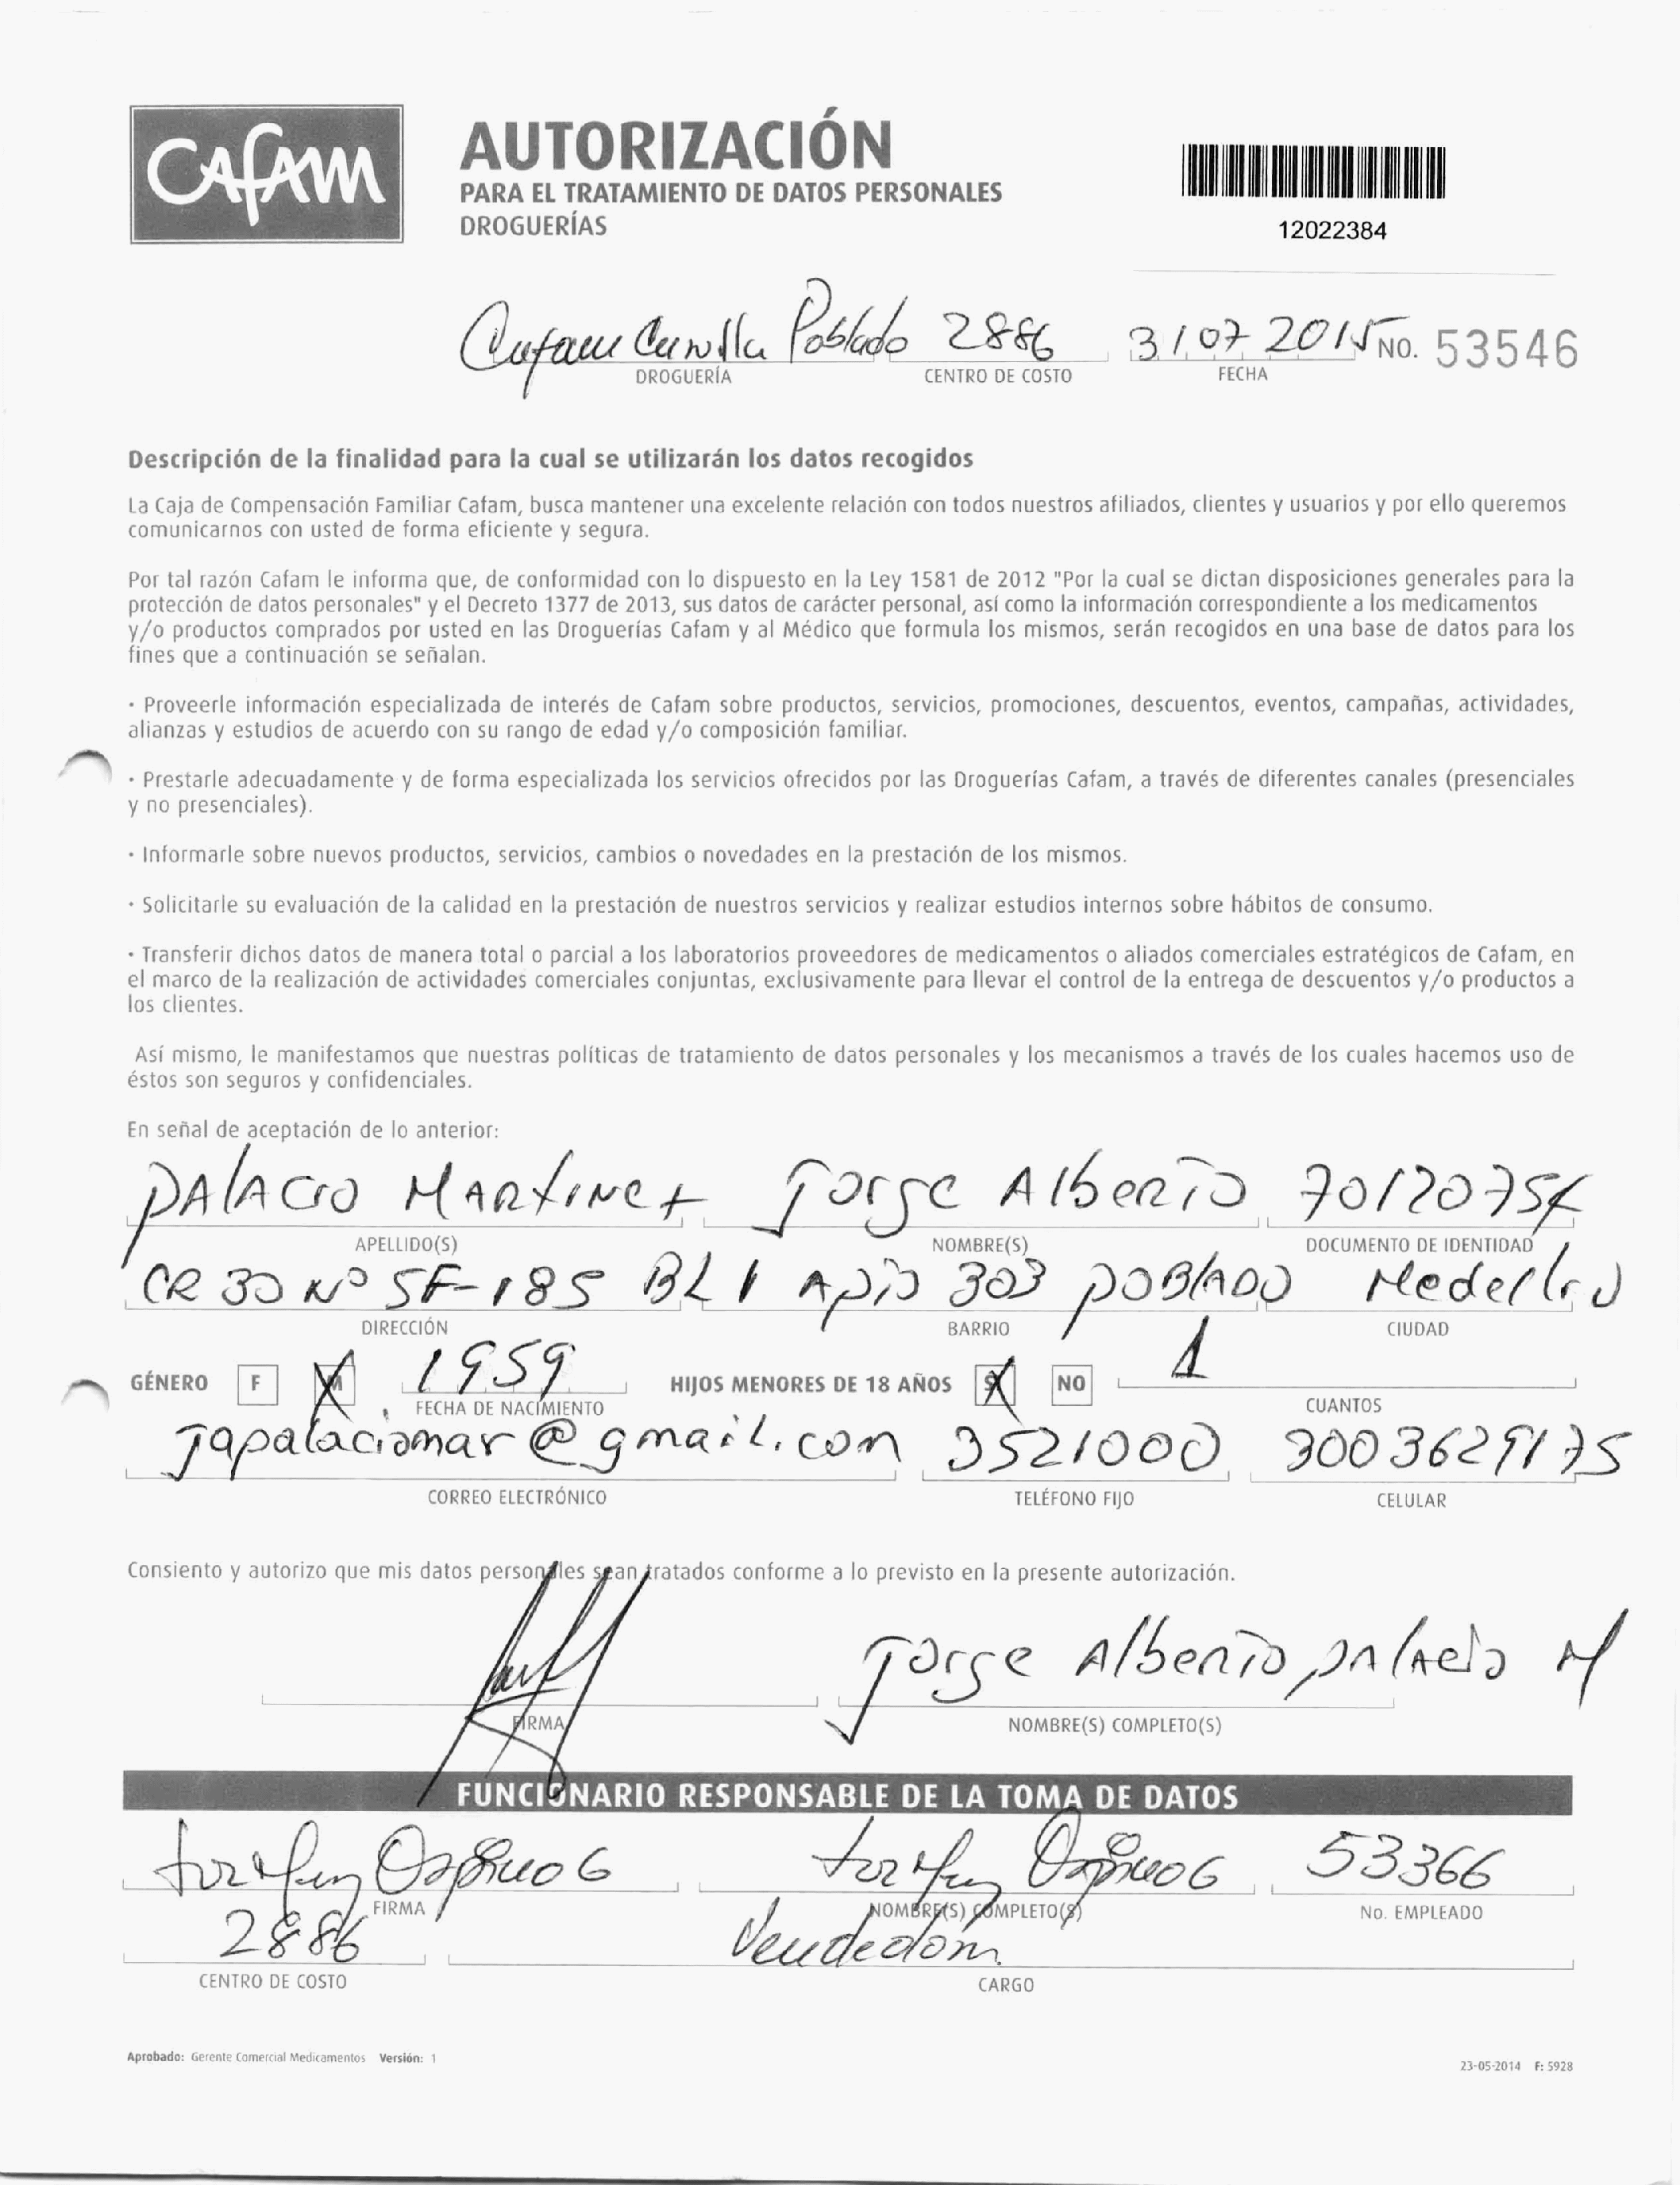 Cafam
AUTORIZACIÓN
PARA EL TRATAMIENTO DE DATOS PERSONALES
DROGUERÍAS
12022384
Cafam Carulla Poblado 2886 31 07 2015 NO. 53546
DROGUERÍA CENTRO DE COSTO FECHA
Descripción de la finalidad para la cual se utilizarán los datos recogidos
La Caja de Compensación Familiar Cafam, busca mantener una excelente relación con todos nuestros afiliados, clientes y usuarios y por ello queremos
comunicarnos con usted de forma eficiente y segura.
Por tal razón Cafam le informa que, de conformidad con lo dispuesto en la Ley 1581 de 2012 "Por la cual se dictan disposiciones generales para la
protección de datos personales" y el Decreto 1377 de 2013, sus datos de carácter personal, así como la información correspondiente a los medicamentos
y/o productos comprados por usted en las Droguerías Cafam y al Médico que formula los mismos, serán recogidos en una base de datos para los
fines que a continuación se señalan.
· Proveerle información especializada de interés de Cafam sobre productos, servicios, promociones, descuentos, eventos, campañas, actividades,
alianzas y estudios de acuerdo con su rango de edad y/o composición familiar.
· Prestarle adecuadamente y de forma especializada los servicios ofrecidos por las Droguerías Cafam, a través de diferentes canales (presenciales
y no presenciales).
· Informarle sobre nuevos productos, servicios, cambios o novedades en la prestación de los mismos.
· Solicitarle su evaluación de la calidad en la prestación de nuestros servicios y realizar estudios internos sobre hábitos de consumo.
· Transferir dichos datos de manera total o parcial a los laboratorios proveedores de medicamentos o aliados comerciales estratégicos de Cafam, en
el marco de la realización de actividades comerciales conjuntas, exclusivamente para llevar el control de la entrega de descuentos y/o productos a
los clientes.
Así mismo, le manifestamos que nuestras políticas de tratamiento de datos personales y los mecanismos a través de los cuales hacemos uso de
éstos son seguros y confidenciales.
En señal de aceptación de lo anterior:
PALACIO MARTINEZ Jorge Alberto 70120754
APELLIDO(S) NOMBRE(S) DOCUMENTO DE IDENTIDAD
CR 30 Nº 5F-185 BL 1 APTO 303 POBLADO Medellin
DIRECCIÓN BARRIO CIUDAD
GÉNERO F M 1959 HIJOS MENORES DE 18 AÑOS SI NO 1
FECHA DE NACIMIENTO CUANTOS
japalaciomar@gmail.com 3521000 3003629175
CORREO ELECTRÓNICO TELÉFONO FIJO CELULAR
Consiento y autorizo que mis datos personales sean tratados conforme a lo previsto en la presente autorización.
Jorge Alberto palacio M
FIRMA NOMBRE(S) COMPLETO(S)
FUNCIONARIO RESPONSABLE DE LA TOMA DE DATOS
Ospina G Ospina G 53366
FIRMA NOMBRE(S) COMPLETO(S) No. EMPLEADO
2886 Vendedora
CENTRO DE COSTO CARGO
Aprobado: Gerente Comercial Medicamentos Versión: 1
23-05-2014 F: 5928